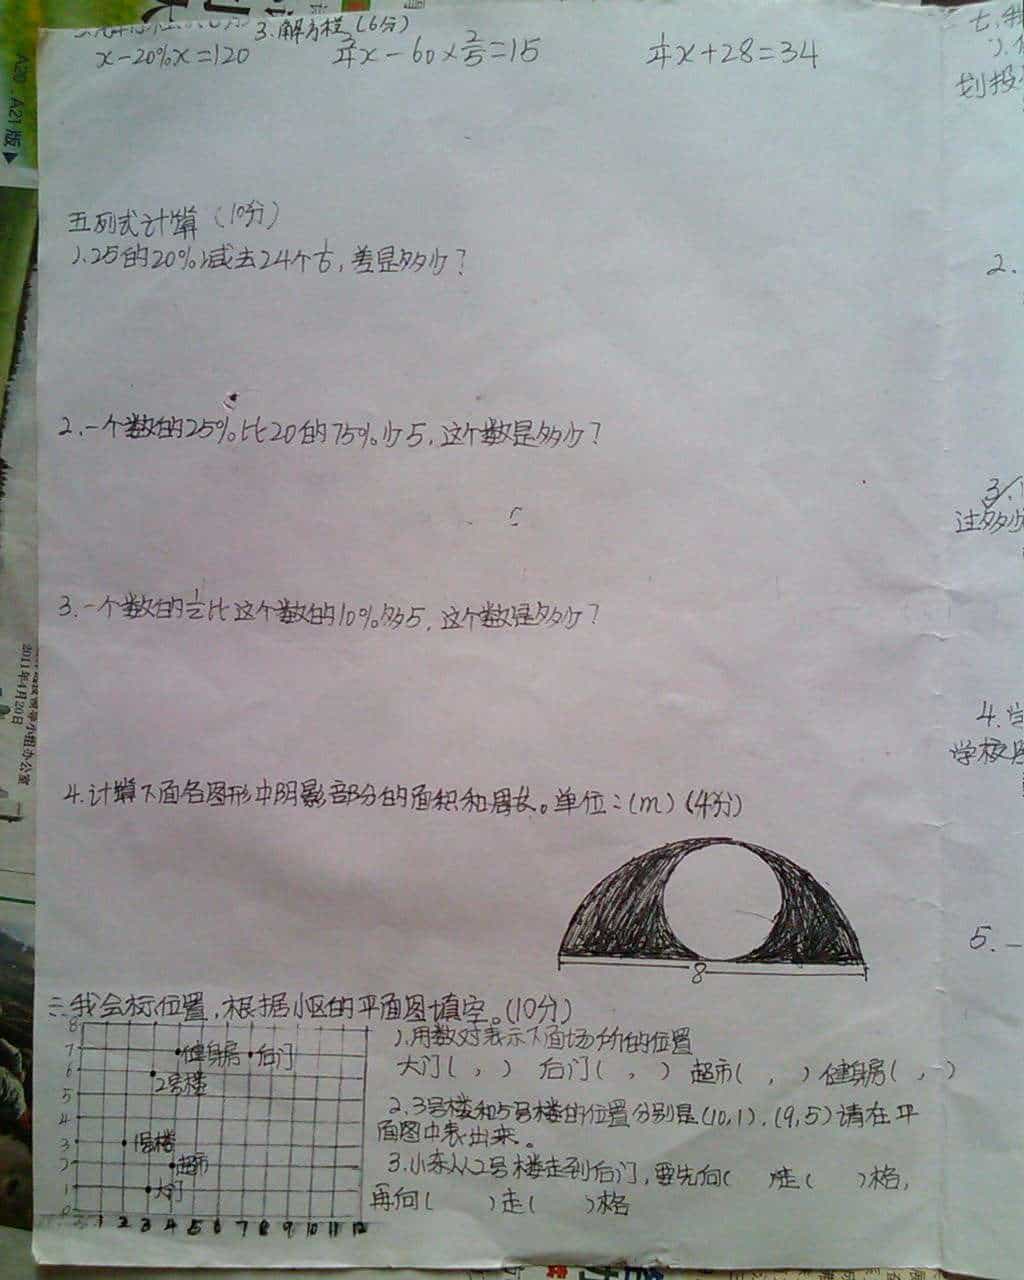 3.解方程(6分)
x-20%x=120 x-60×2/5=15 1/4x+28=34
五列式计算(10分)
1.25的20%减去24个1/6,差是多少?
2.一个数的25%比20的75%少5,这个数是多少?
3.一个数的1/2比这个数的10%多5,这个数是多少?
4.计算下面各图形中阴影部分的面积和周长。单位:(m)(4分)
8
二.我会标位置,根据小区的平面图填空。(10分)
8
7
6
5
4
3
2
1
0
健身房 后门
2号楼
1号楼
超市
大门
1 2 3 4 5 6 7 8 9 10 11 12
1.用数对表示下面场所的位置
大门( , ) 后门( , ) 超市( , ) 健身房( , )
2.3号楼和5号楼的位置分别是(10,1).(9,5)请在平
面图中表出来。
3.小东从2号楼走到后门,要先向( )走( )格,
再向( )走( )格
七.我
1.
划投
2.
3.
过多少
4.学
学校
5.一
A20 . A21版
2011年4月20日